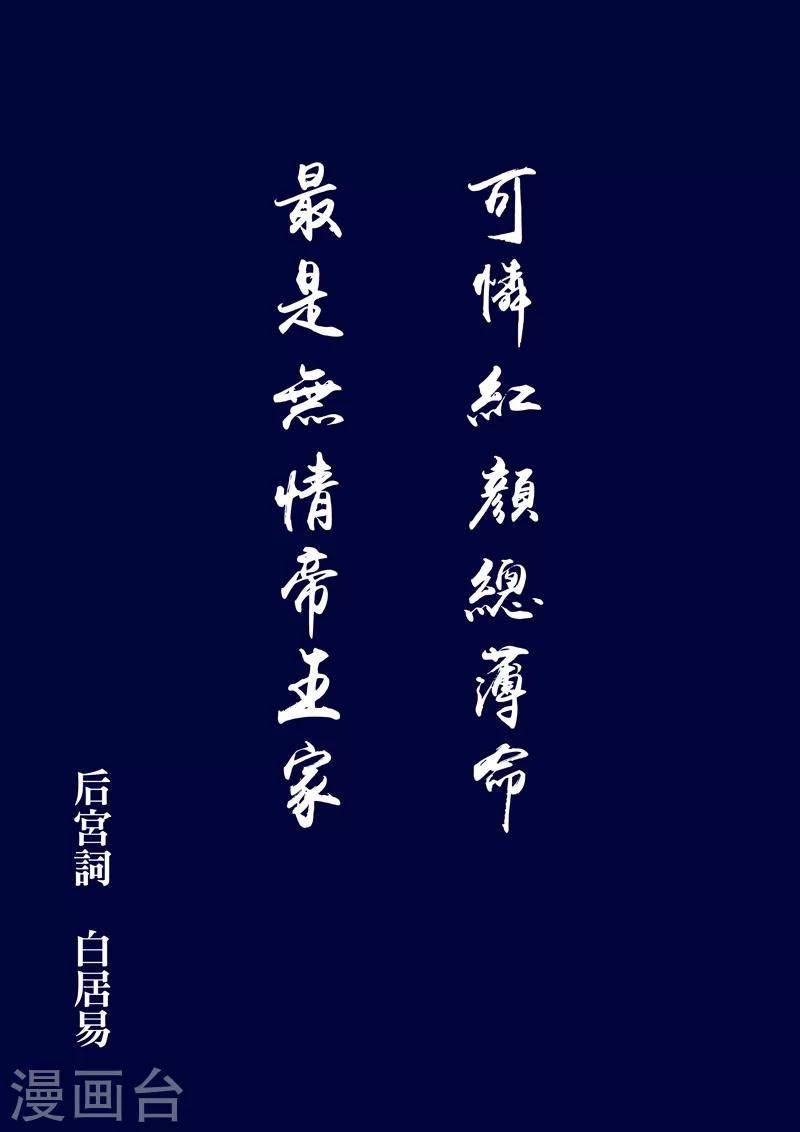 可憐紅顔總薄命
最是無情帝王家
后宮詞 白居易
漫画台